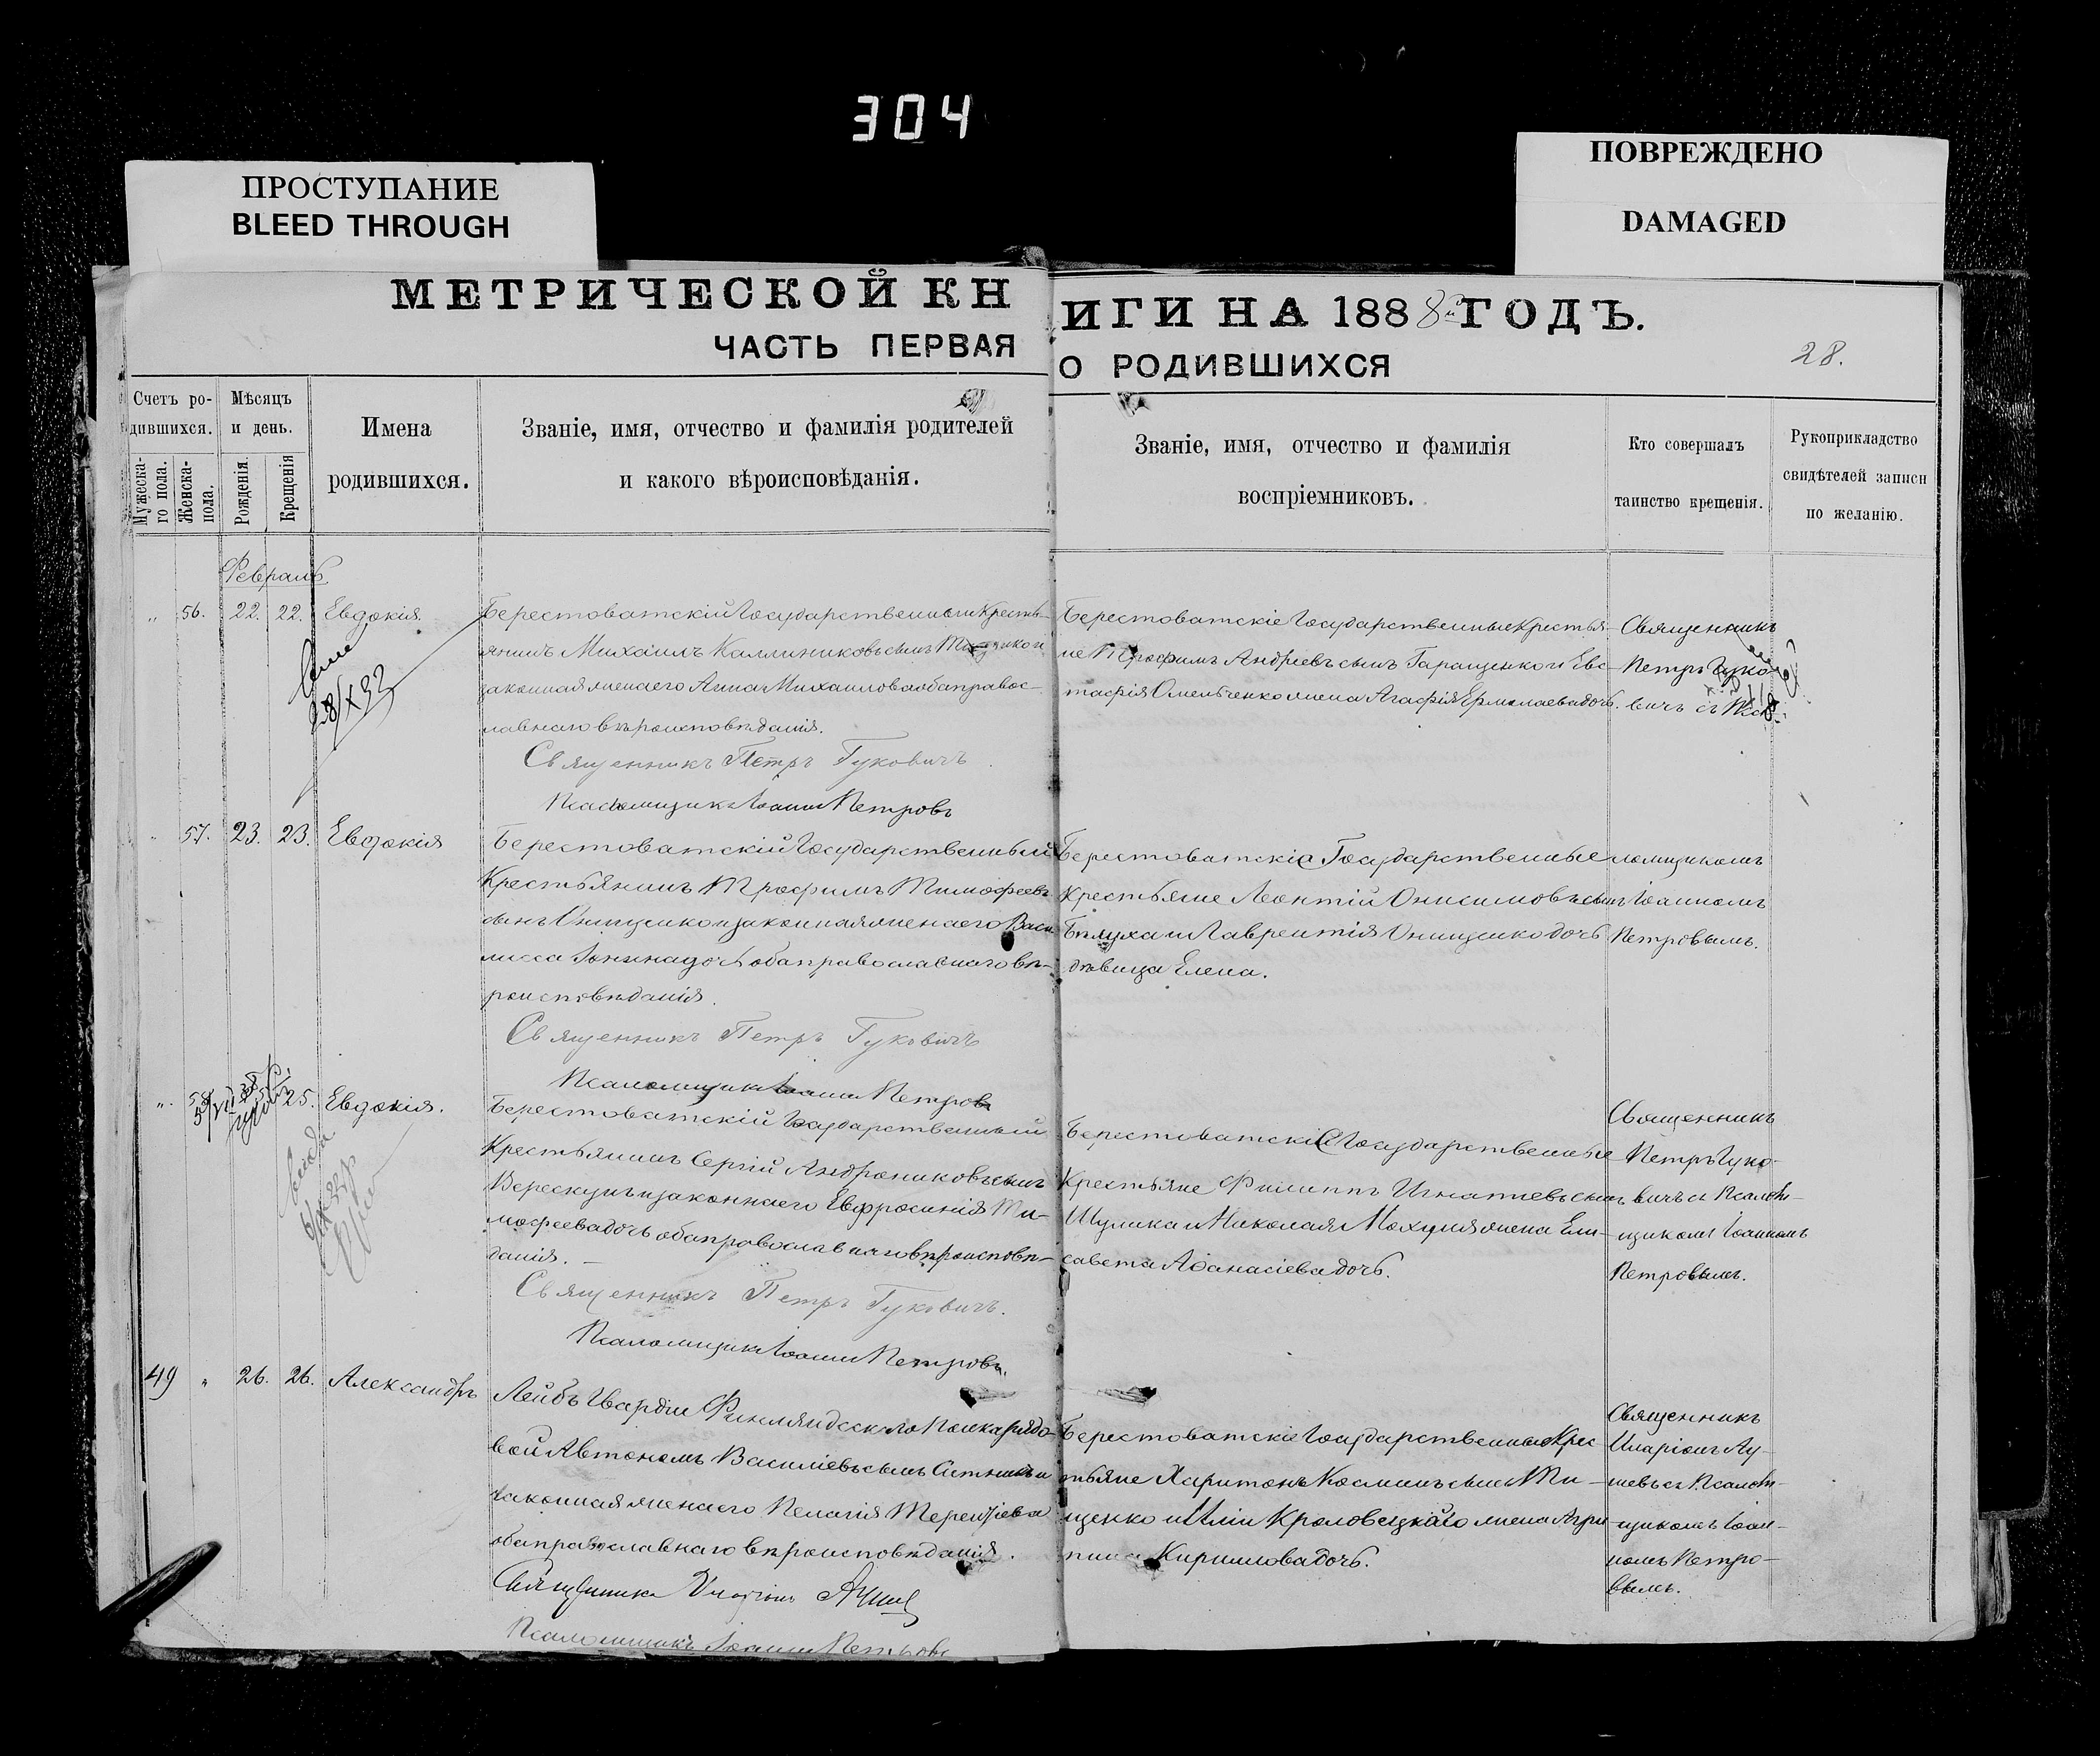 304
ПРОСТУПАНИЕ
BLEED THROUGH
ПОВРЕЖДЕНО
DAMAGED
МЕТРИЧЕСКОЙ КНИГИ НА 1888й ГОДЪ.
ЧАСТЬ ПЕРВАЯ О РОДИВШИХСЯ
28.
Счетъ ро-
дившихся.
Мужеска-
го пола.
Женска-
пола.
Мѣсяцъ
и день.
Рожденія.
Крещенія
Имена
родившихся.
Званіе, имя, отчество и фамилія родителей
и какого вѣроисповѣданія.
Званіе, имя, отчество и фамилія
воспріемниковъ.
Кто совершалъ
таинство крещенія.
Рукоприкладство
свидѣтелей записи
по желанію.
Февраль
„ 56. 22. 22. Евдокія.
28/X 32
Берестоватскій Государственный Кресть-
янинъ Михаилъ Каллиниковъ сынъ
законная жена его Анна Михаилова оба правос-
лавнаго вѣроисповѣданія.
Священникъ Петръ Гуковичъ
Псаломщикъ Іоаннъ Петровъ
Берестоватскіе Государственные Крестья-
не Трофимъ Андреевъ сынъ Гаращенко и Евс-
тафія Омельченко жена Агафія Ермолаева дочь.
Священникъ
Петръ Гуко-
вичъ съ Псa-
„ 57. 23. 23. Евдокія
Берестоватскій Государственный
Крестьянинъ Трофимъ Тимофеевъ
сынъ Онищенко и законная жена его Васи-
лисса Іонина дочь оба православнаго вѣ-
роисповѣданія.
Священникъ Петръ Гуковичъ
Псаломщикъ Іоаннъ Петровъ
Берестоватскіе Государственные
Крестьяне Леонтій Онисимовъ сынъ
Бѣлуха и Лаврентія Онищенко дочь
дѣвица Елена.
ломщикомъ
Іоанномъ
Петровымъ.
„ 58 25. Евдокія.
Берестоватскій Государственный
Крестьянинъ Сергій Андрониковъ сынъ
Верескунъ и законная его Евфросинія Ти-
мофеева дочь оба православнаго вѣроисповѣ-
данія. —
Священникъ Петръ Гуковичъ.
Псаломщикъ Іоаннъ Петровъ.
Берестоватскіе Государственные
Крестьяне Филиппъ Игнатіевъ сынъ
Шулика и Николая Махуля жена Ели-
савета Аѳанасіева дочь.
Священникъ
Петръ Гуко-
вичъ съ Псалом-
щикомъ Іоанномъ
Петровымъ.
49 „ 26. 26. Александръ
Лейбъ Гвардіи Финляндскаго Полка рядо-
вой Автономъ Василіевъ сынъ Ситникъ и
законная жена его Пелагія Терентіева
оба православнаго вѣроисповѣданія.
Священникъ Иларіонъ
Псаломщикъ Іоаннъ Петровъ
Берестоватскіе Государственные Крес-
тьяне Харитонъ Косминъ сынъ Ти-
щенко и Иліи Кроловецкаго жена Агри-
пина Кириллова дочь.
Священникъ
Иларіонъ
съ Псалом-
щикомъ Іоан-
номъ Петро-
вымъ.